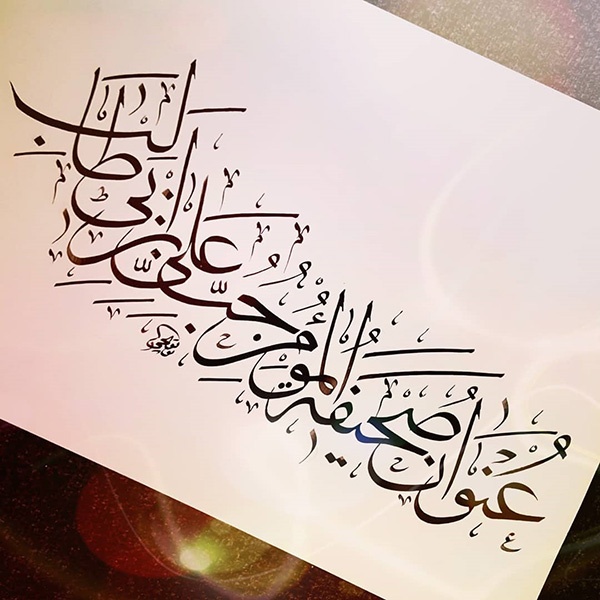 عُنْوانُ صَحيفَةِ المُؤْمِنِ حُبُّ عَلِيِّ بْنِ أَبي طالِبٍ